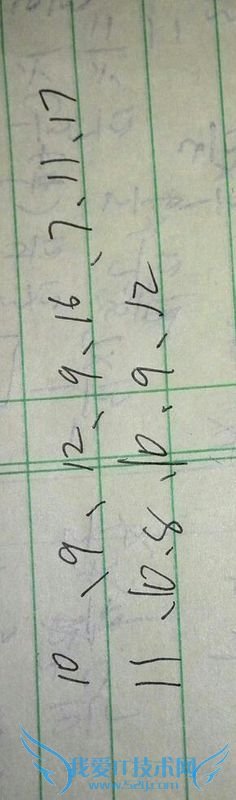 10、9、12、9、16、7、11、17
11、10、8、10、9、12
我爱IT技术网
www.52ij.com